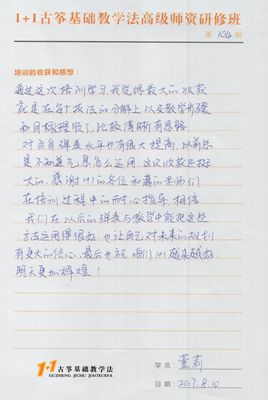 1+1古筝基础教学法高级师资研修班
第 104 期
培训的收获和感想：
通过这次培训学习，我觉得最大的收获
就是在各个技法的分解上以及教学步骤
和目标提炼了，比较清晰有思路
对自身弹奏水平也有很大提高，以前总
是不知道气息怎么运用，这次收获还挺
大的，感谢1+1的各位和蔼的老师们
在培训过程中的耐心指导，相信
我们在以后的弹奏与教学中能把这些
方法运用得很好，也让自己对未来的规划
有更大的信心，最后也祝咱们1+1越来越好
明天更加辉煌！
1+1古筝基础教学法
GUZHENG JICHU JIAOXUEFA
学员：董莉
日期：2017.8.10